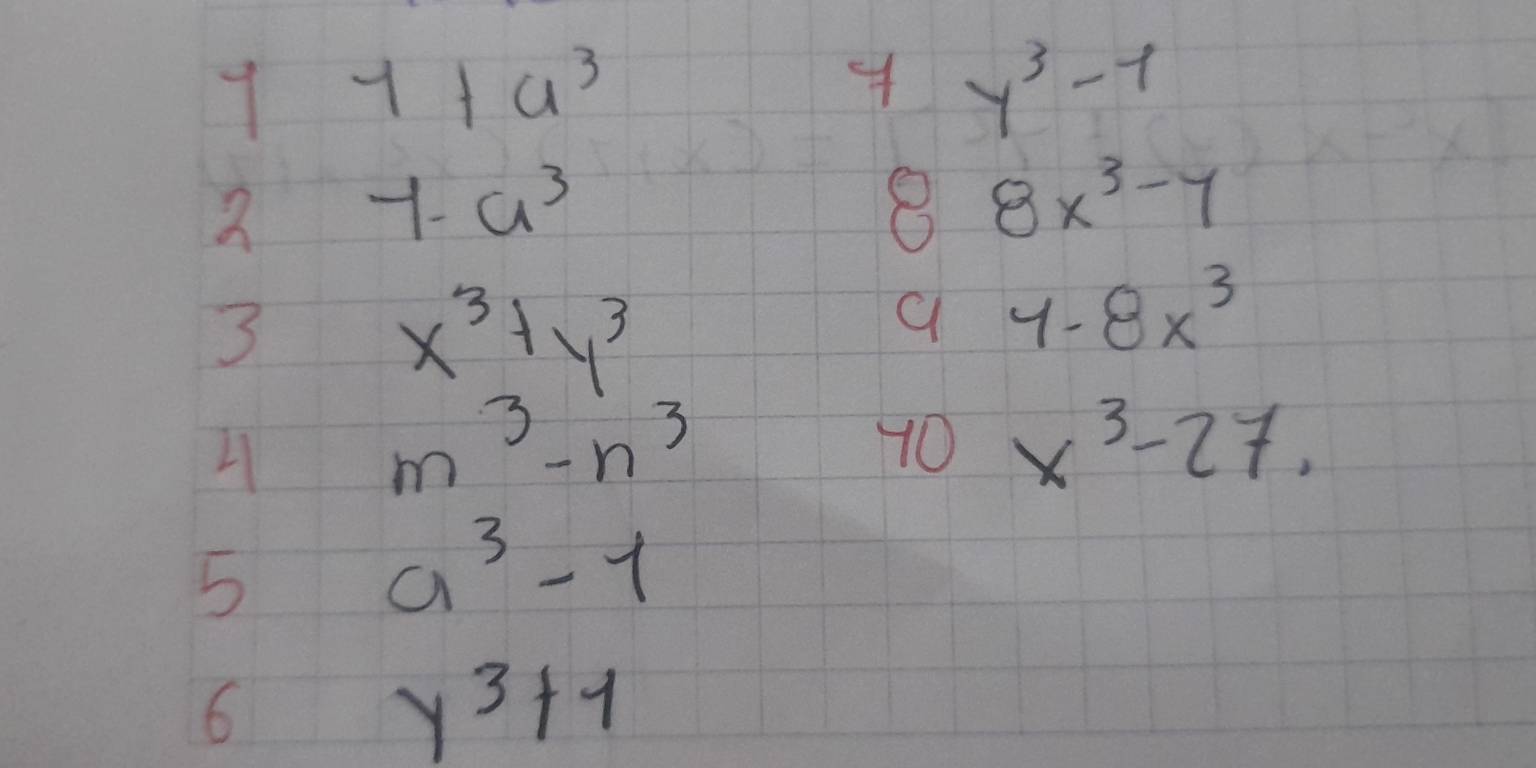 1 1 + a³
2 1 - a³
3 x³ + y³
4 m³ - n³
5 a³ - 1
6 y³ + 1
7 y³ - 1
8 8x³ - 1
9 1 - 8x³
10 x³ - 27.